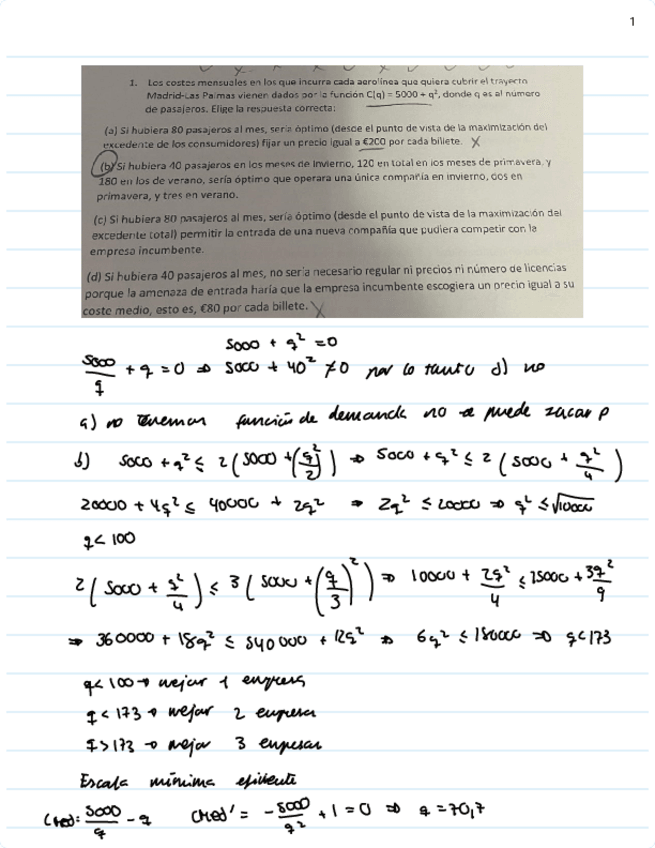 1
1. Los costes mensuales en los que incurra cada aerolínea que quiera cubrir el trayecto
Madrid-Las Palmas vienen dados por la función C(q) = 5000 + q², donde q es al número
de pasajeros. Elige la respuesta correcta:
(a) Si hubiera 80 pasajeros al mes, sería óptimo (desde el punto de vista de la maximización del
excedente de los consumidores) fijar un precio igual a €200 por cada billete. X
(b) Si hubiera 40 pasajeros en los meses de invierno, 120 en total en los meses de primavera, y
180 en los de verano, sería óptimo que operara una única compañía en invierno, dos en
primavera, y tres en verano.
(c) Si hubiera 80 pasajeros al mes, sería óptimo (desde el punto de vista de la maximización del
excedente total) permitir la entrada de una nueva compañía que pudiera competir con la
empresa incumbente.
(d) Si hubiera 40 pasajeros al mes, no sería necesario regular ni precios ni número de licencias
porque la amenaza de entrada haría que la empresa incumbente escogiera un precio igual a su
coste medio, esto es, €80 por cada billete. X
5000 + q² = 0
5000/q + q = 0 ⇒ 5000 + 40² ≠ 0 por lo tanto d) no
a) no tenemos función de demanda no se puede sacar p
b) 5000 + q² ≤ 2(5000 + (q/2)²) ⇒ 5000 + q² ≤ 2(5000 + q²/4)
20000 + 4q² ≤ 40000 + 2q² ⇒ 2q² ≤ 20000 ⇒ q² ≤ √10000
q < 100
2(5000 + q²/4) ≤ 3(5000 + (q/3)²) ⇒ 10000 + 2q²/4 ≤ 15000 + 3q²/9
⇒ 360000 + 18q² ≤ 540000 + 12q² ⇒ 6q² ≤ 180000 ⇒ q < 173
q < 100 → mejor 1 empresa
q < 173 → mejor 2 empresas
q > 173 → mejor 3 empresas
Escala mínima eficiente
Cmed = 5000/q - q Cmed' = -5000/q² + 1 = 0 ⇒ q = 70,7